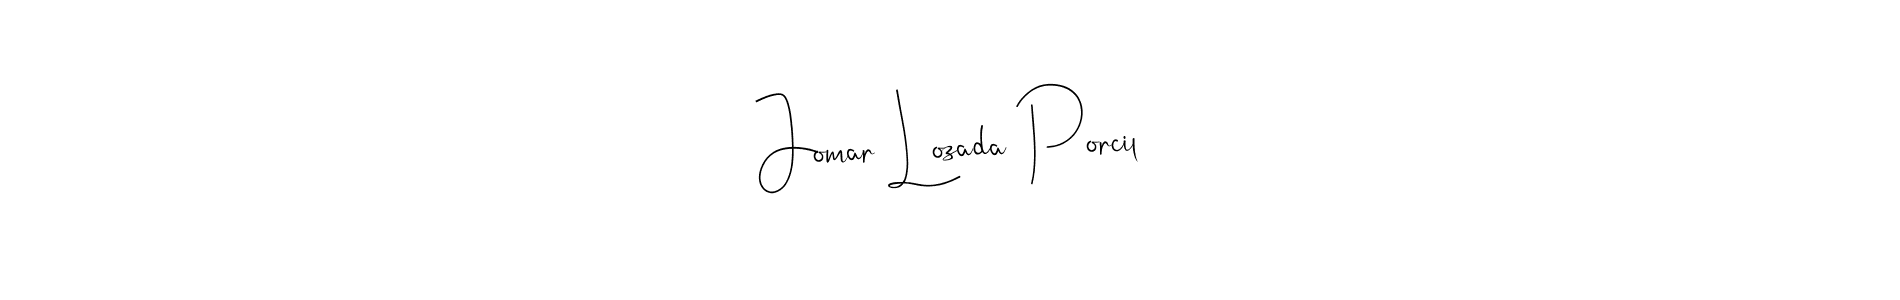 Jomar Lozada Porcil